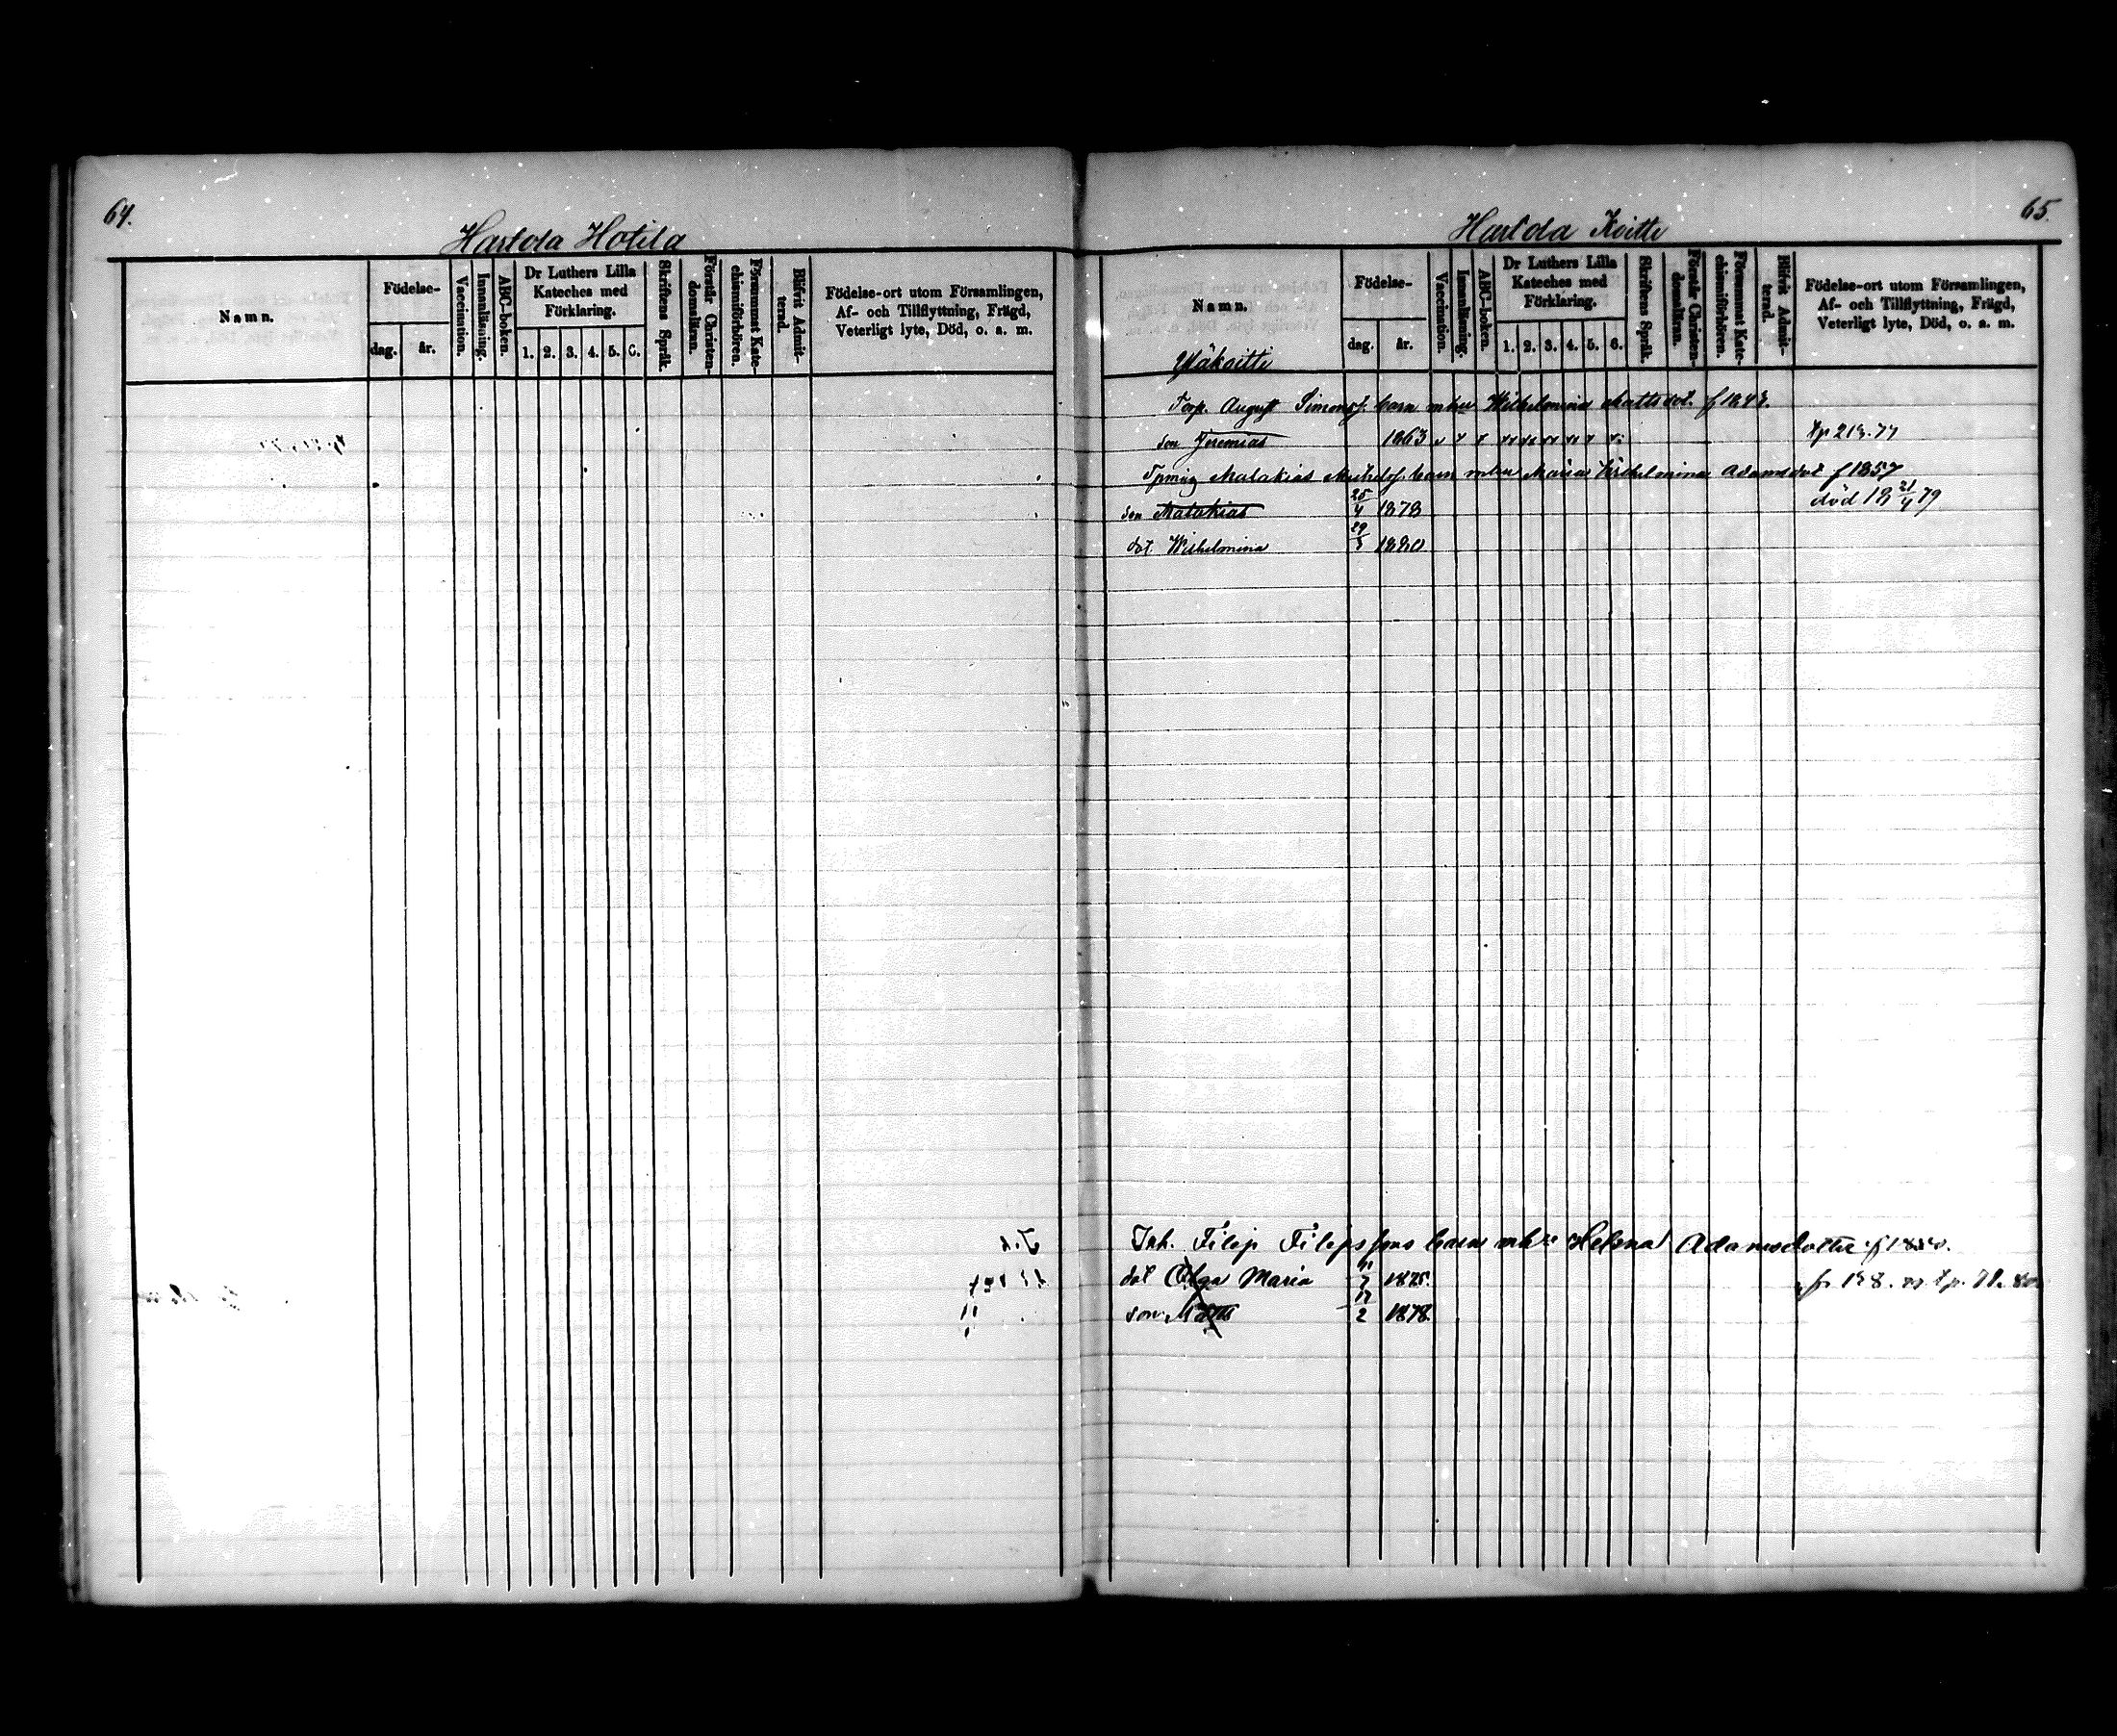 64.
Harlola Hotila
Namn.
Födelse-
dag.
år.
Vaccination.
Innanläsning.
ABC-boken.
Dr Luthers Lilla
Kateches med
Förklaring.
1. 2. 3. 4. 5. 6.
Skriftens Språk.
Förstår Christen-
domslärän.
Försummat Kate-
chismiförhören.
Blifvit Admit-
terad.
Födelse-ort utom Församlingen,
Af- och Tillflyttning, Frägd,
Veterligt lyte, Död, o. a. m.
65.
Harlola Koitti
Namn.
Födelse-
dag.
år.
Vaccination.
Innanläsning.
ABC-boken.
Dr Luthers Lilla
Kateches med
Förklaring.
1. 2. 3. 4. 5. 6.
Skriftens Språk.
Förstår Christen-
domsläran.
Försummat Kate-
chismiförhören.
Blifvit Admit-
terad.
Födelse-ort utom Församlingen,
Af- och Tillflyttning, Frägd,
Veterligt lyte, Död, o. a. m.
Yläkoitti
Torp. August Simonss. barn mhu Wilhelmina Mattsdot. f 1843.
son Jeremias 1863 tp 213. 77
Malakias Michelss. barn mhu Maria Wilhelmina Adamsdot f 1857
son Malakias 25/4 1878 död 18 21/4 79
dot Wilhelmina 29/3 1880
Joh. Filip Filipssons barn mhu Helena Adamsdotter f 1850.
dot Olga Maria 11/7 1875. fr 158. tp. 71. 80.
son Matts 17/2 1878.